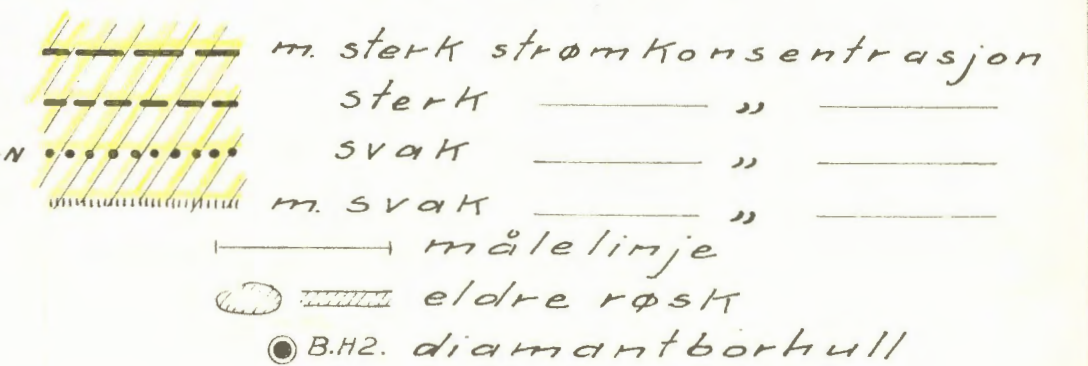 m. sterk strømkonsentrasjon
sterk —— „ ——
N svak —— „ ——
m. svak —— „ ——
målelinje
eldre røsk
B.H2. diamantborhull